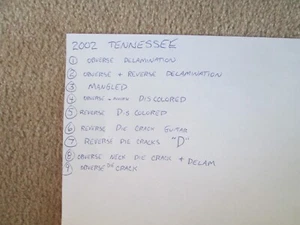 2002 TENNESSEE
1 OBVERSE DELAMINATION
2 OBVERSE + REVERSE DELAMINATION
3 MANGLED
4 OBVERSE + DISCOLORED
5 REVERSE DISCOLORED
6 REVERSE DIE CRACK GUITAR
7 REVERSE DIE CRACKS "D"
8 OBVERSE NECK DIE CRACK + DELAM.
9 OBVERSE DIE CRACK